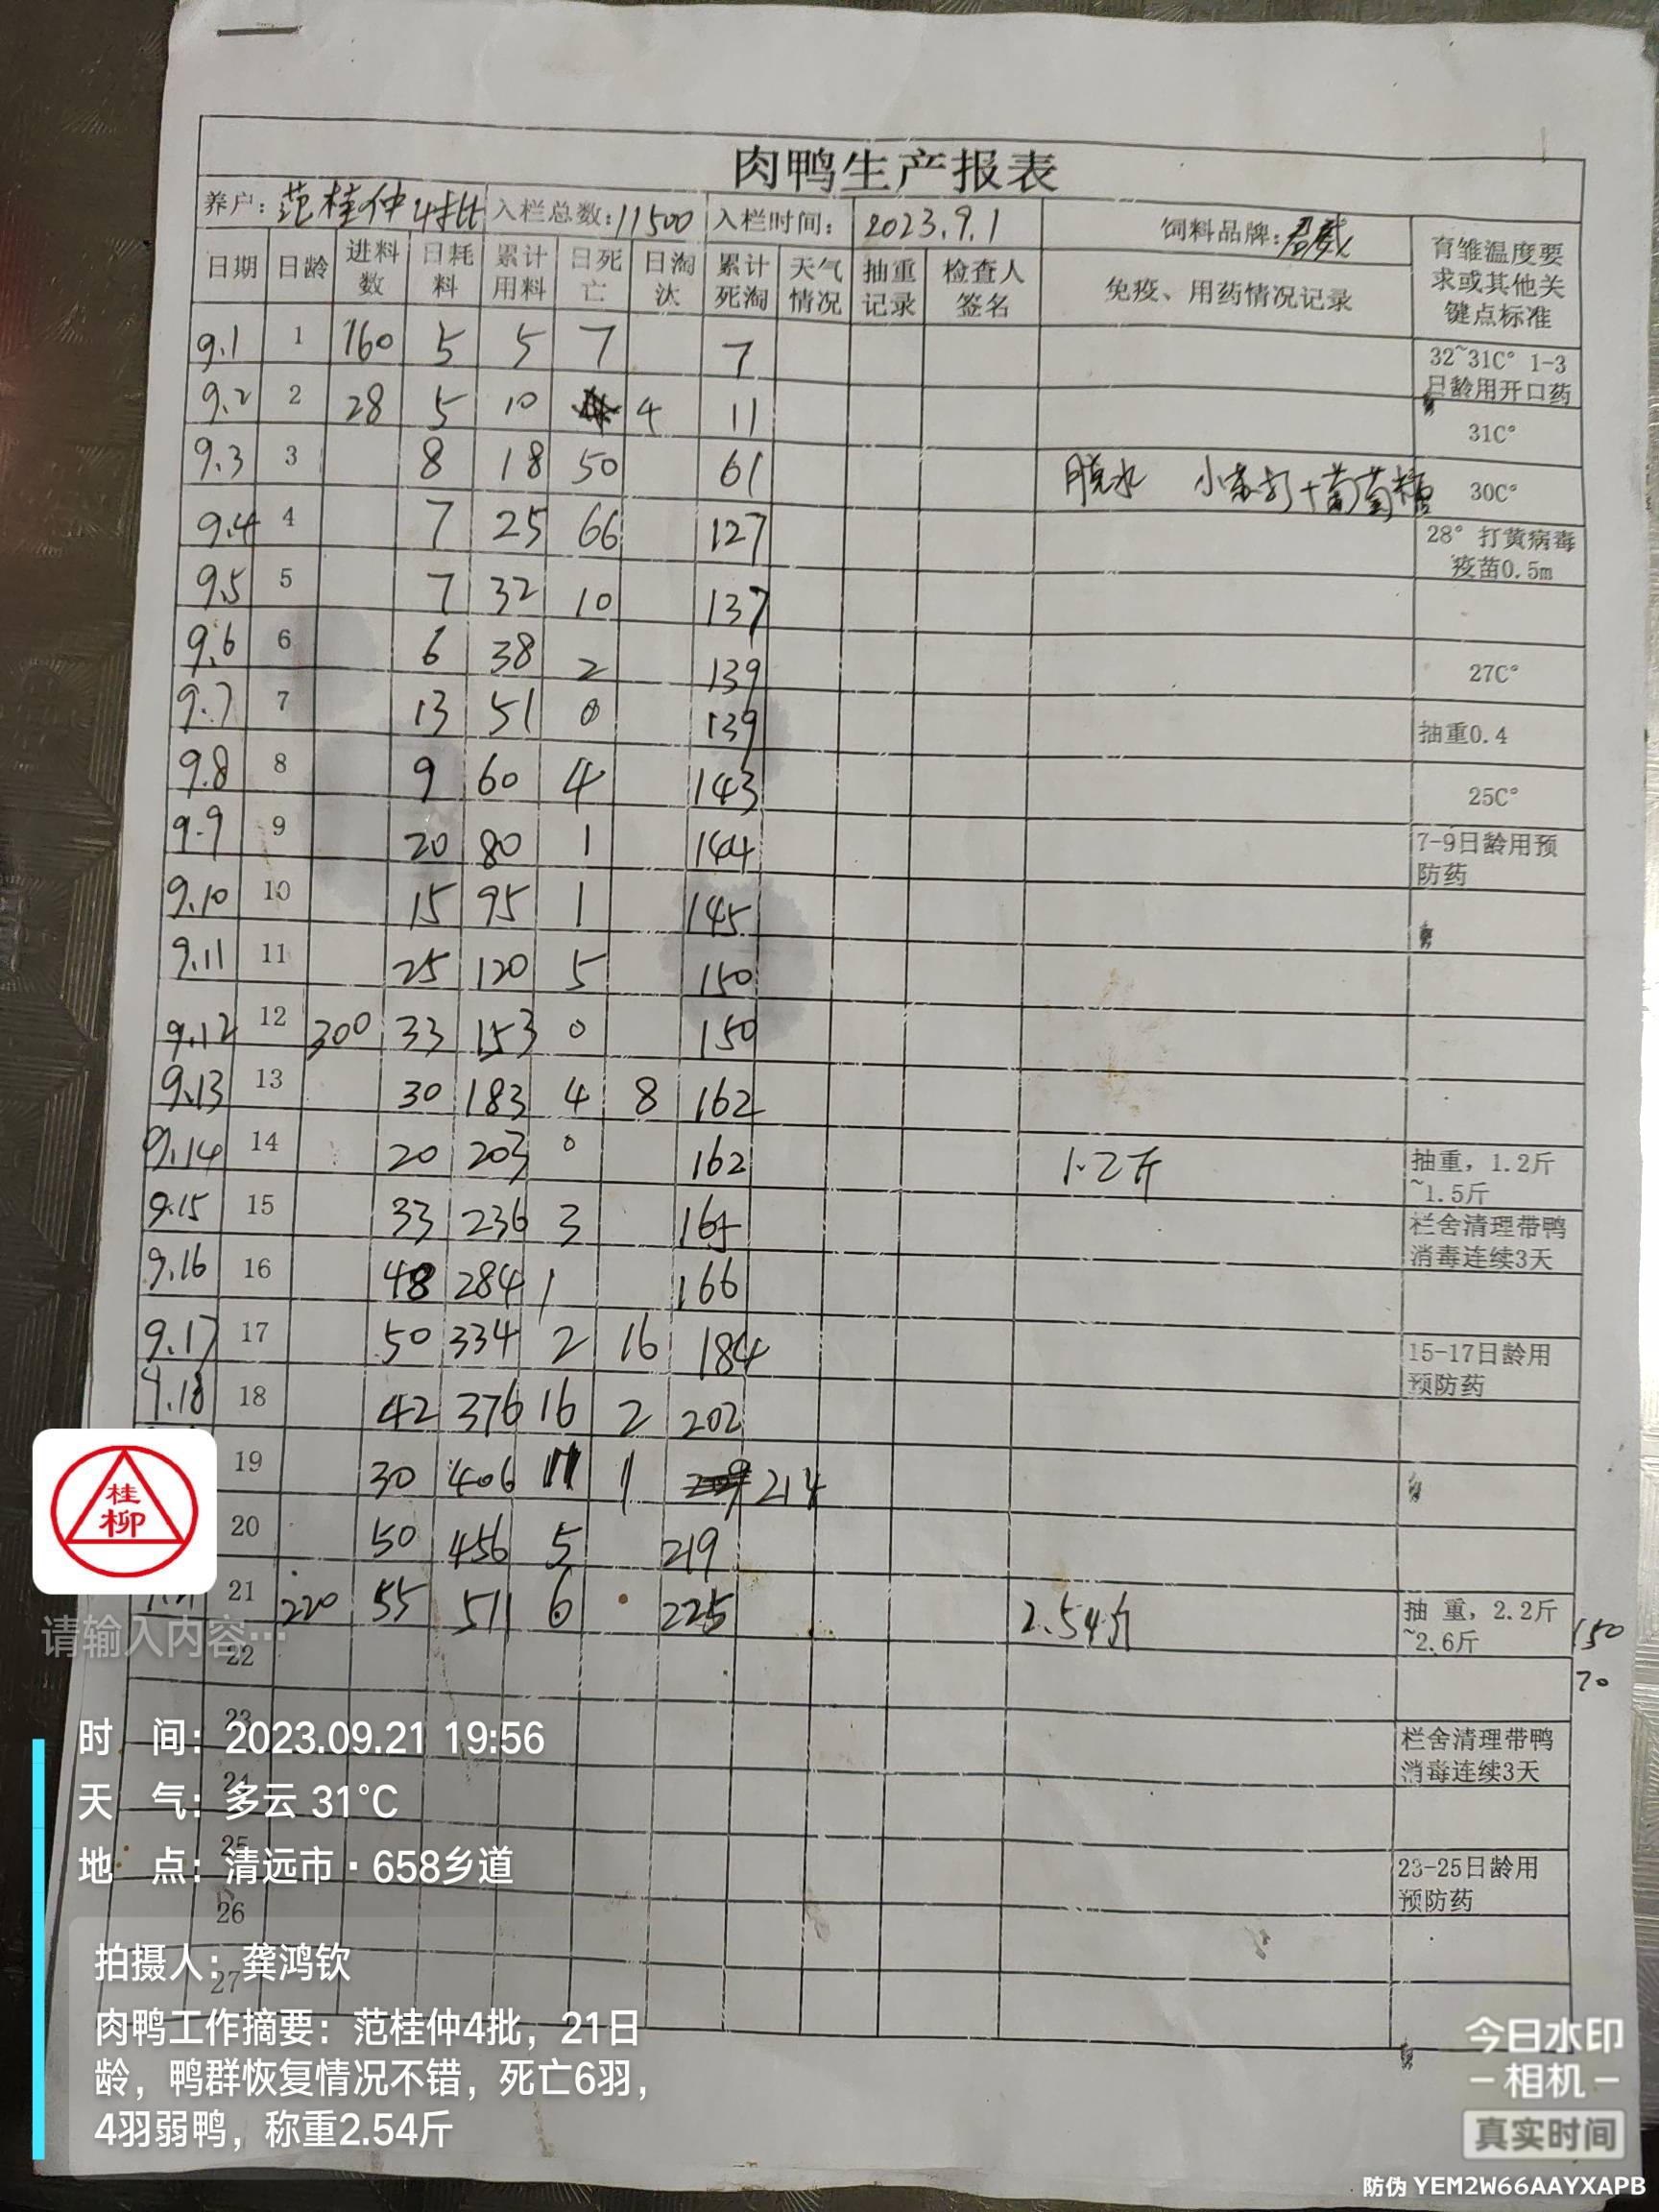 肉鸭生产报表
养户: 范桂仲4批 入栏总数: 11500 入栏时间: 2023.9.1 饲料品牌: 君威
日期 日龄 进料数 日耗料 累计用料 日死亡 日淘汰 累计死淘 天气情况 抽重记录 检查人签名 免疫、用药情况记录 育雏温度要求或其他关键点标准
9.1 1 160 5 5 7 7 32~31C° 1-3日龄用开口药
9.2 2 28 5 10 4 11 31C°
9.3 3 8 18 50 61 脱水 小苏打+葡萄糖 30C°
9.4 4 7 25 66 127 28° 打黄病毒疫苗0.5m
9.5 5 7 32 10 137
9.6 6 6 38 2 139 27C°
9.7 7 13 51 0 139 抽重0.4
9.8 8 9 60 4 143 25C°
9.9 9 20 80 1 144 7-9日龄用预防药
9.10 10 15 95 1 145
9.11 11 25 120 5 150
9.12 12 300 33 153 0 150
9.13 13 30 183 4 8 162
9.14 14 20 203 0 162 1.2斤 抽重，1.2斤~1.5斤
9.15 15 33 236 3 165 栏舍清理带鸭消毒连续3天
9.16 16 48 284 1 166
9.17 17 50 334 2 16 184 15-17日龄用预防药
9.18 18 42 376 16 2 202
19 30 406 11 1 214
20 50 456 5 219
21 220 55 511 6 225 2.54斤 抽 重，2.2斤~2.6斤 150
22 70
23 栏舍清理带鸭消毒连续3天
24
25 23-25日龄用预防药
26
27
桂柳
请输入内容…
时 间：2023.09.21 19:56
天 气：多云 31℃
地 点：清远市·658乡道
拍摄人：龚鸿钦
肉鸭工作摘要：范桂仲4批，21日
龄，鸭群恢复情况不错，死亡6羽，
4羽弱鸭，称重2.54斤
今日水印
相机
真实时间
防伪 YEM2W66AAYXAPB